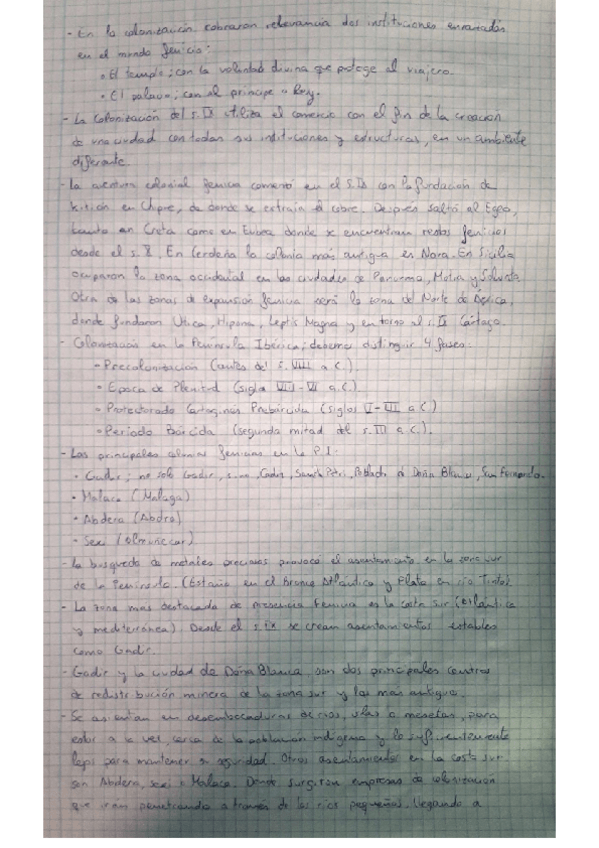 - En la colonización cobraron relevancia dos instituciones enraizadas
en el mundo fenicio:
• El templo; con la voluntad divina que protege al viajero.
• El palacio; con el príncipe o Rey.
- La Colonización del s. IX utiliza el comercio con el fin de la creación
de una ciudad con todas sus instituciones y estructuras, en un ambiente
diferente.
- La aventura colonial fenicia comenzó en el S.IX con la fundación de
Kitión en Chipre, de donde se extraía el cobre. Después saltó al Egeo,
tanto en Creta como en Eubea donde se encuentran restos fenicios
desde el s. X. En Cerdeña la colonia más antigua es Nora. En Sicilia
ocuparon la zona occidental en las ciudades de Panormo, Motia y Solunto.
Otra de las zonas de expansión fenicia será la zona del Norte de África,
donde fundaron Utica, Hipona, Leptis Magna y en torno al s. IX Cartago.
- Colonización en la Península Ibérica; debemos distinguir 4 fases:
- Precolonización (antes del s. VIII a.C.).
- Época de Plenitud (siglo VIII - VI a.C.).
• Protectorado Cartaginés Prebárcida (siglos V - III a.C.)
• Periodo Bárcida (segunda mitad del s. III a.C.).
- Las principales colonias fenicias en la P.I:
• Gadir; no solo Gadir, sino, Cádiz, Sancti Petri, Poblado de Doña Blanca, San Fernando.
• Malaca (Málaga)
• Abdera (Abdra)
• Sexi (Almuñécar)
- La búsqueda de metales preciosos provocó el asentamiento en la zona sur
de la Península. (Estaño en el Bronce Atlántico y Plata en río Tinto).
- La zona más destacada de presencia fenicia es la costa sur (atlántica
y mediterránea). Desde el s. IX se crean asentamientos estables
como Gadir.
- Gadir y la ciudad de Doña Blanca, son dos principales centros
de redistribución minera de la zona sur y las más antiguas.
- Se asientan en desembocaduras de ríos, islas o mesetas, para
estar a la vez, cerca de la población indígena y lo suficientemente
lejos para mantener su seguridad. Otros asentamientos en la costa sur
son Abdera, Sexi o Malaca. Donde surgirán empresas de colonización
que irán penetrando a través de los ríos pequeños, llegando a